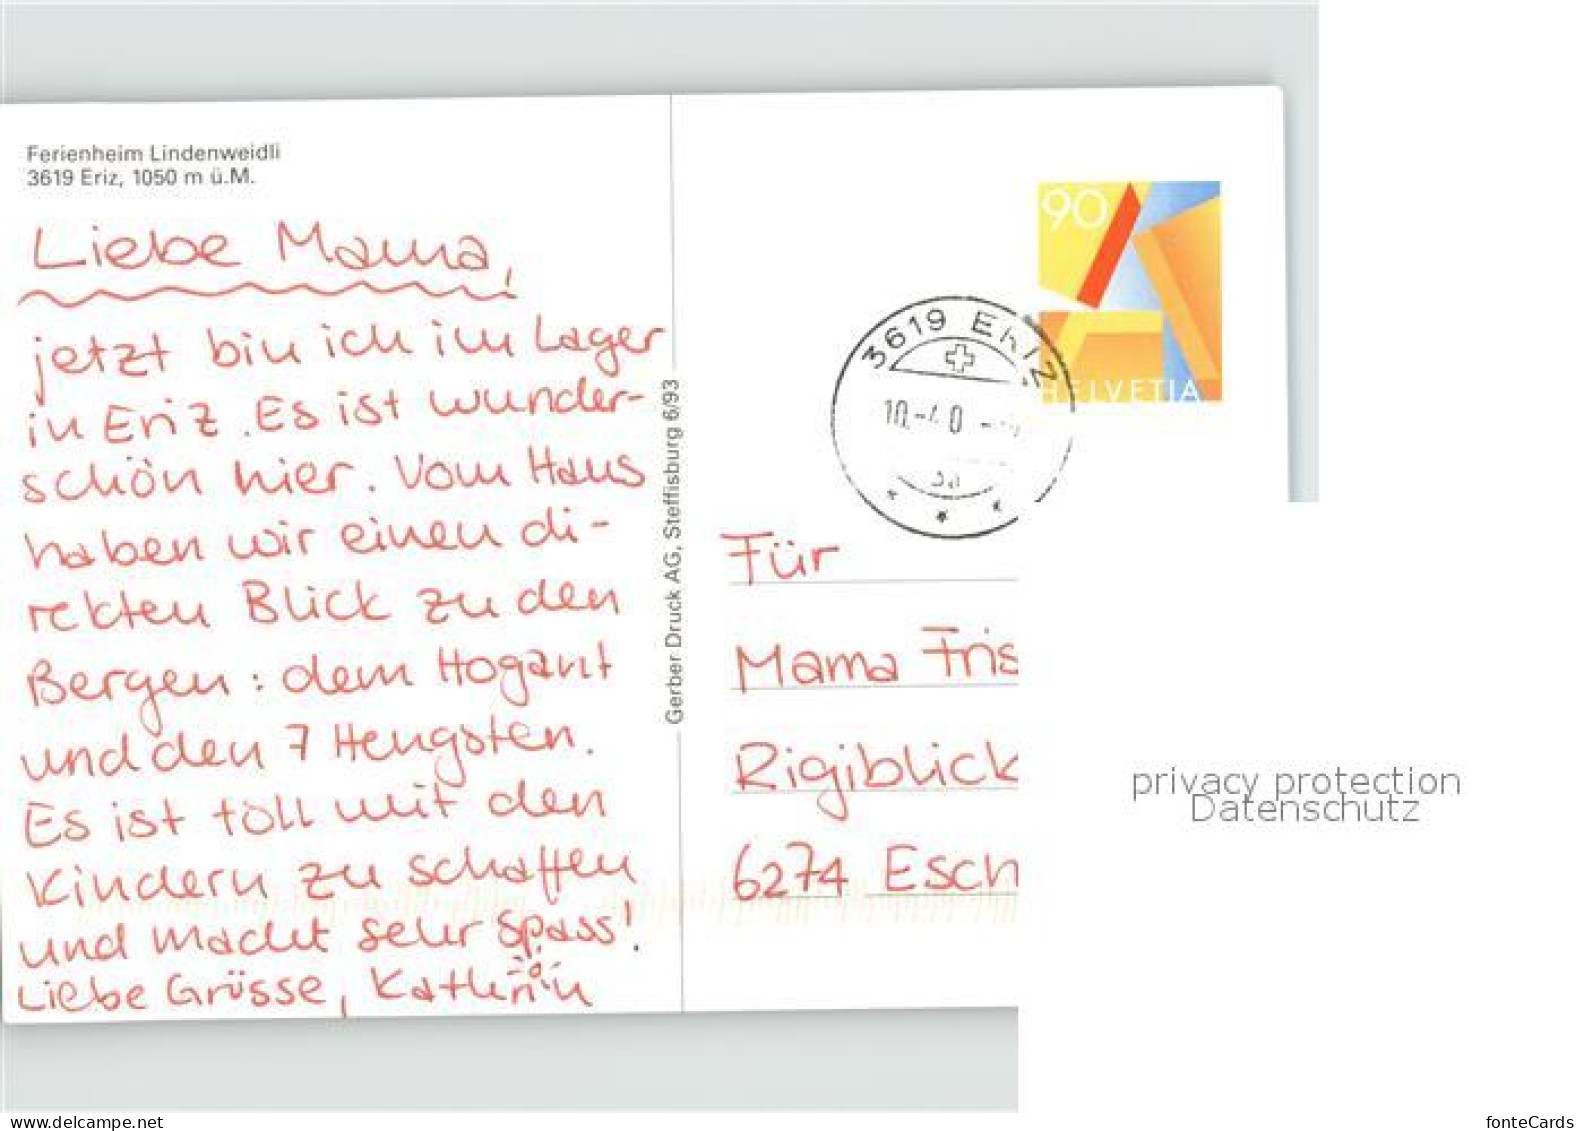 Ferienheim Lindenweidli
3619 Eriz, 1050 m ü.M.
Liebe Mama,
jetzt bin ich im Lager
in Eriz. Es ist wunder-
schön hier. Vom Haus
haben wir einen di-
rekten Blick zu den
Bergen: dem Hogant
und den 7 Hengsten.
Es ist toll mit den
Kindern zu schaffen
und macht sehr Spass!
Liebe Grüsse, Kathrin
Gerber Druck AG, Steffisburg 6/93
90
HELVETIA
3619 Eriz
Für
Mama Fris
Rigiblick
6274 Esch
privacy protection
Datenschutz
www.delcampe.net
fonteCards